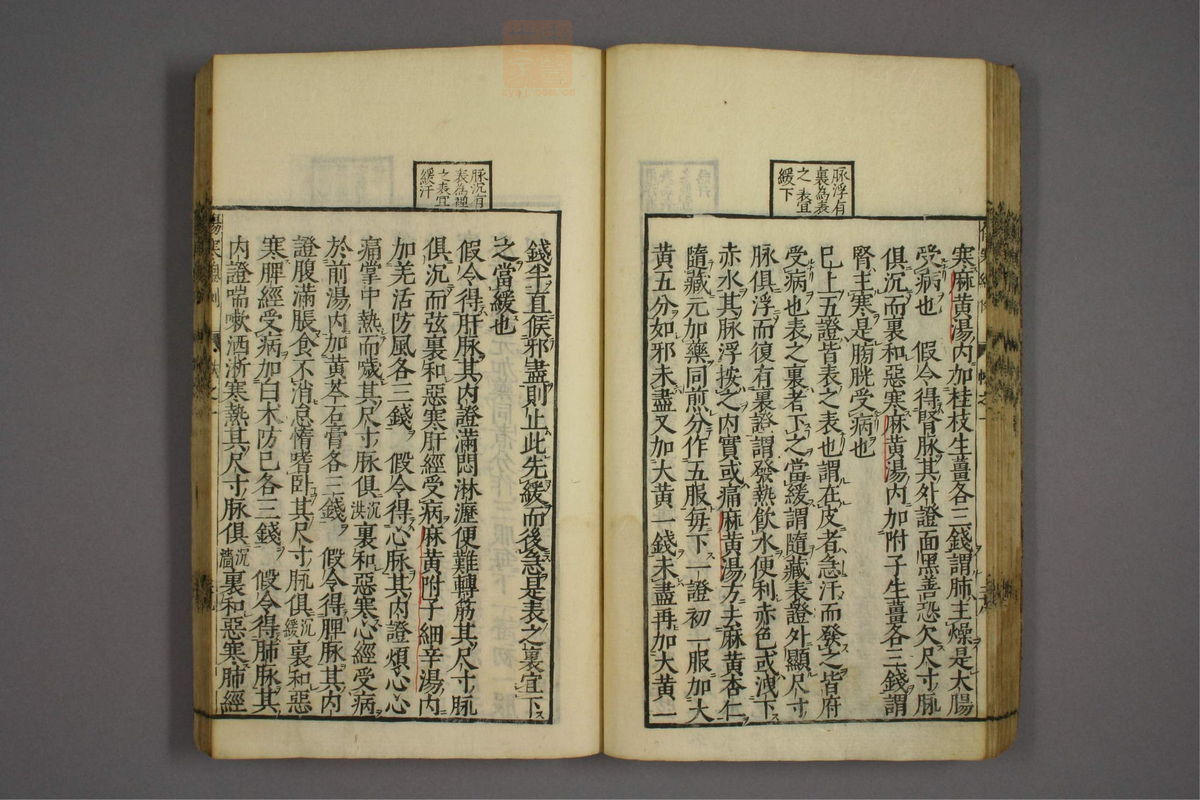 脉浮有
裏為表
之表宜
緩下
寒麻黄湯内加桂枝生薑各三錢謂肺主燥是大腸
受病也 假令得腎脉其外證面黑善恐欠尺寸脉
俱沉而裏和惡寒麻黄湯内加附子生薑各三錢謂
腎主寒是膀胱受病也
巳上五證皆表之表也謂在皮者急汗而發之皆府
受病也表之裏者下之當緩謂隨藏表證外顯尺寸
脉俱浮而復有裏證謂發熱飲水便利赤色或洩下
赤水其脉浮按之内實或痛麻黄湯方去麻黄杏仁
隨藏元加藥同煎分作五服每下一證初一服加大
黄五分如邪未盡又加大黄一錢未盡再加大黄一
脉沉有
表為裡
之表宜
緩汗
錢半直候邪盡則止此先緩而後急是表之裏宜下
之當緩也
假令得肝脉其内證滿悶淋瀝便難轉筋其尺寸脉
俱沉而弦裏和惡寒肝經受病麻黄附子細辛湯内
加羌活防風各三錢 假令得心脉其内證煩心心
痛掌中熱而噦其尺寸脉俱沉洪裏和惡寒心經受病
於前湯内加黄芩石膏各三錢 假令得脾脉其内
證腹滿脹食不消怠惰嗜卧其尺寸脉俱沉緩裏和惡
寒脾經受病加白木防己各三錢 假令得肺脉其
内證喘嗽洒淅寒熱其尺寸脉俱沉濇裏和惡寒肺經